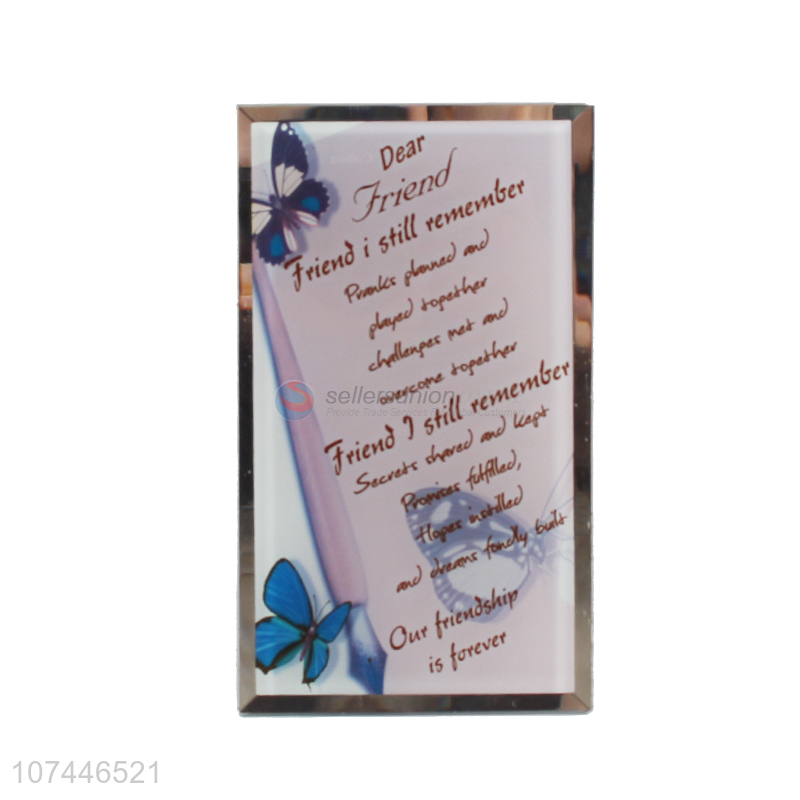 Dear
Friend
Friend i still remember
Pranks planned and
played together
challenges met and
overcome together
Friend I still remember
Secrets shared and kept
Promises fulfilled,
Hopes instilled
and dreams fondly built
Our friendship
is forever
sellersunion
107446521